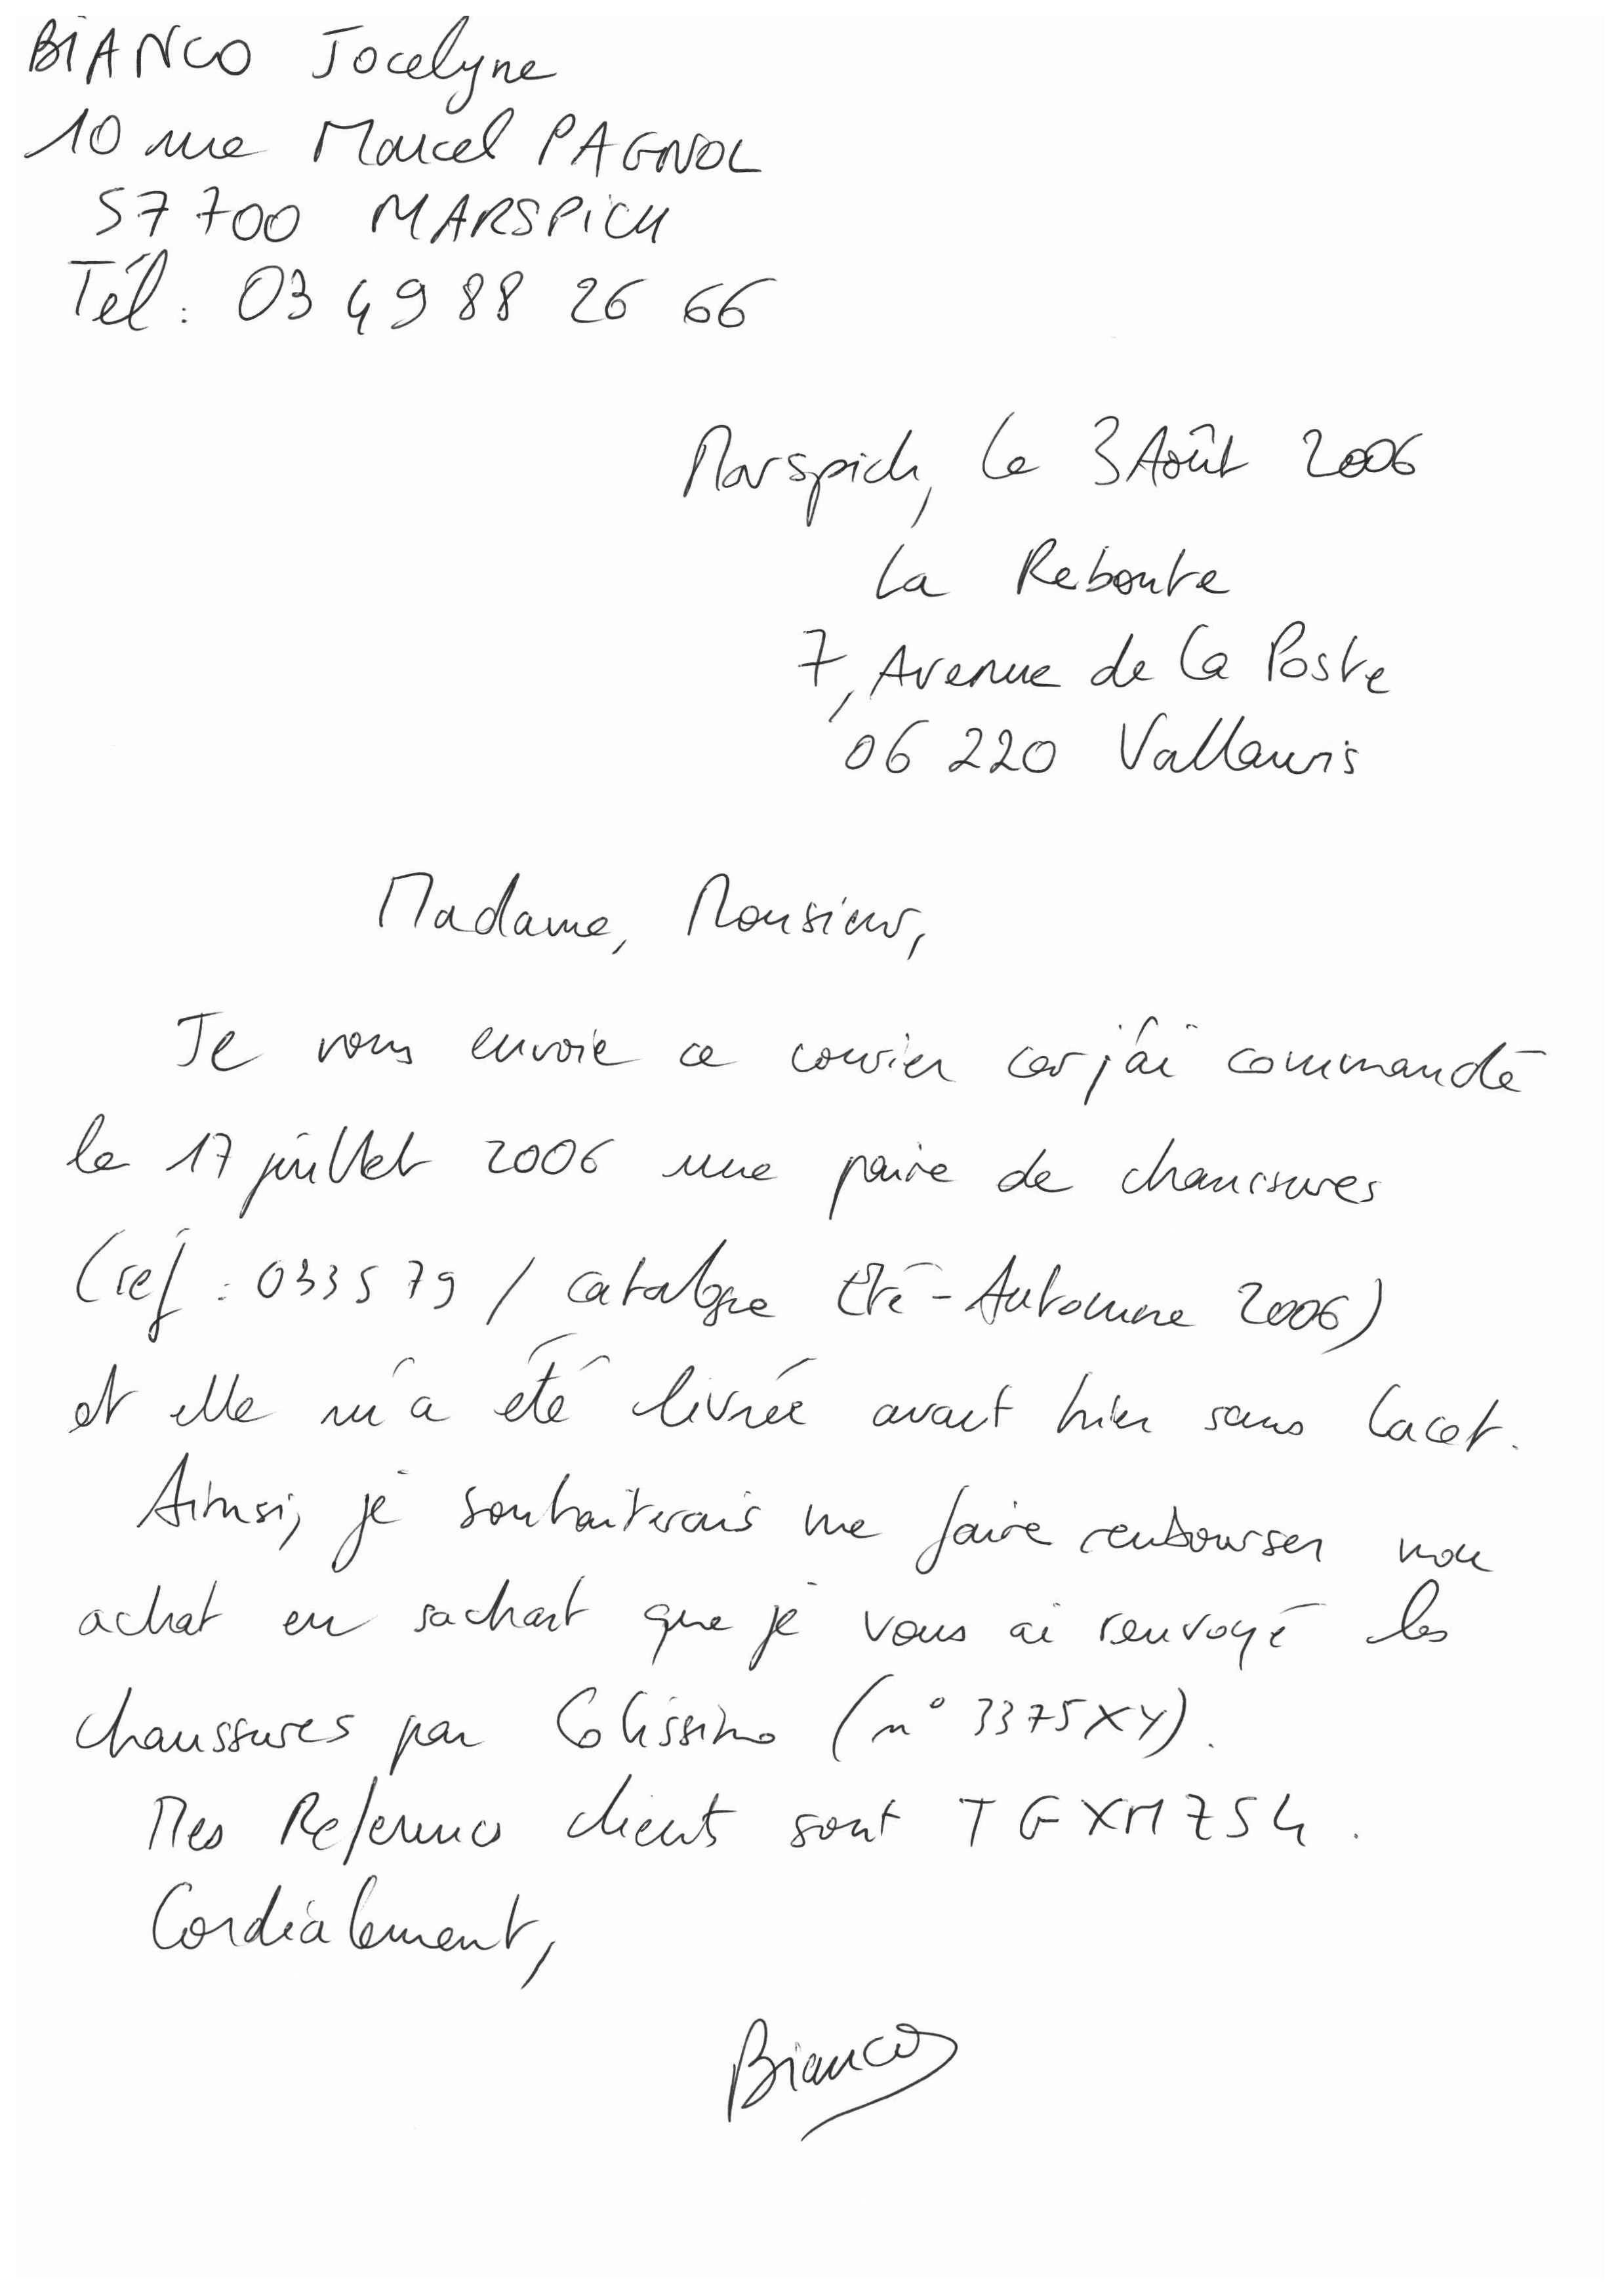 BIANCO Jocelyne
10 rue Marcel PAGNOL
57700 MARSPICH
Tél : 03 49 88 26 66
Marspich, le 3 Août 2006
La Reboute
7, Avenue de la Poste
06 220 Vallauris
Madame, Monsieur,
Je vous envoie ce courier car j'ai commandé
le 17 juillet 2006 une paire de chaussures
(ref : 033579 / catalogue Eté - Automne 2006)
et elle m'a été livrée avant hier sans lacet.
Ainsi, je souhaiterais me faire rembourser mon
achat en sachant que je vous ai renvoyé les
chaussures par Colissimo (n° 3375XY).
Mes References clients sont TGXM754.
Cordialement,
Bianco